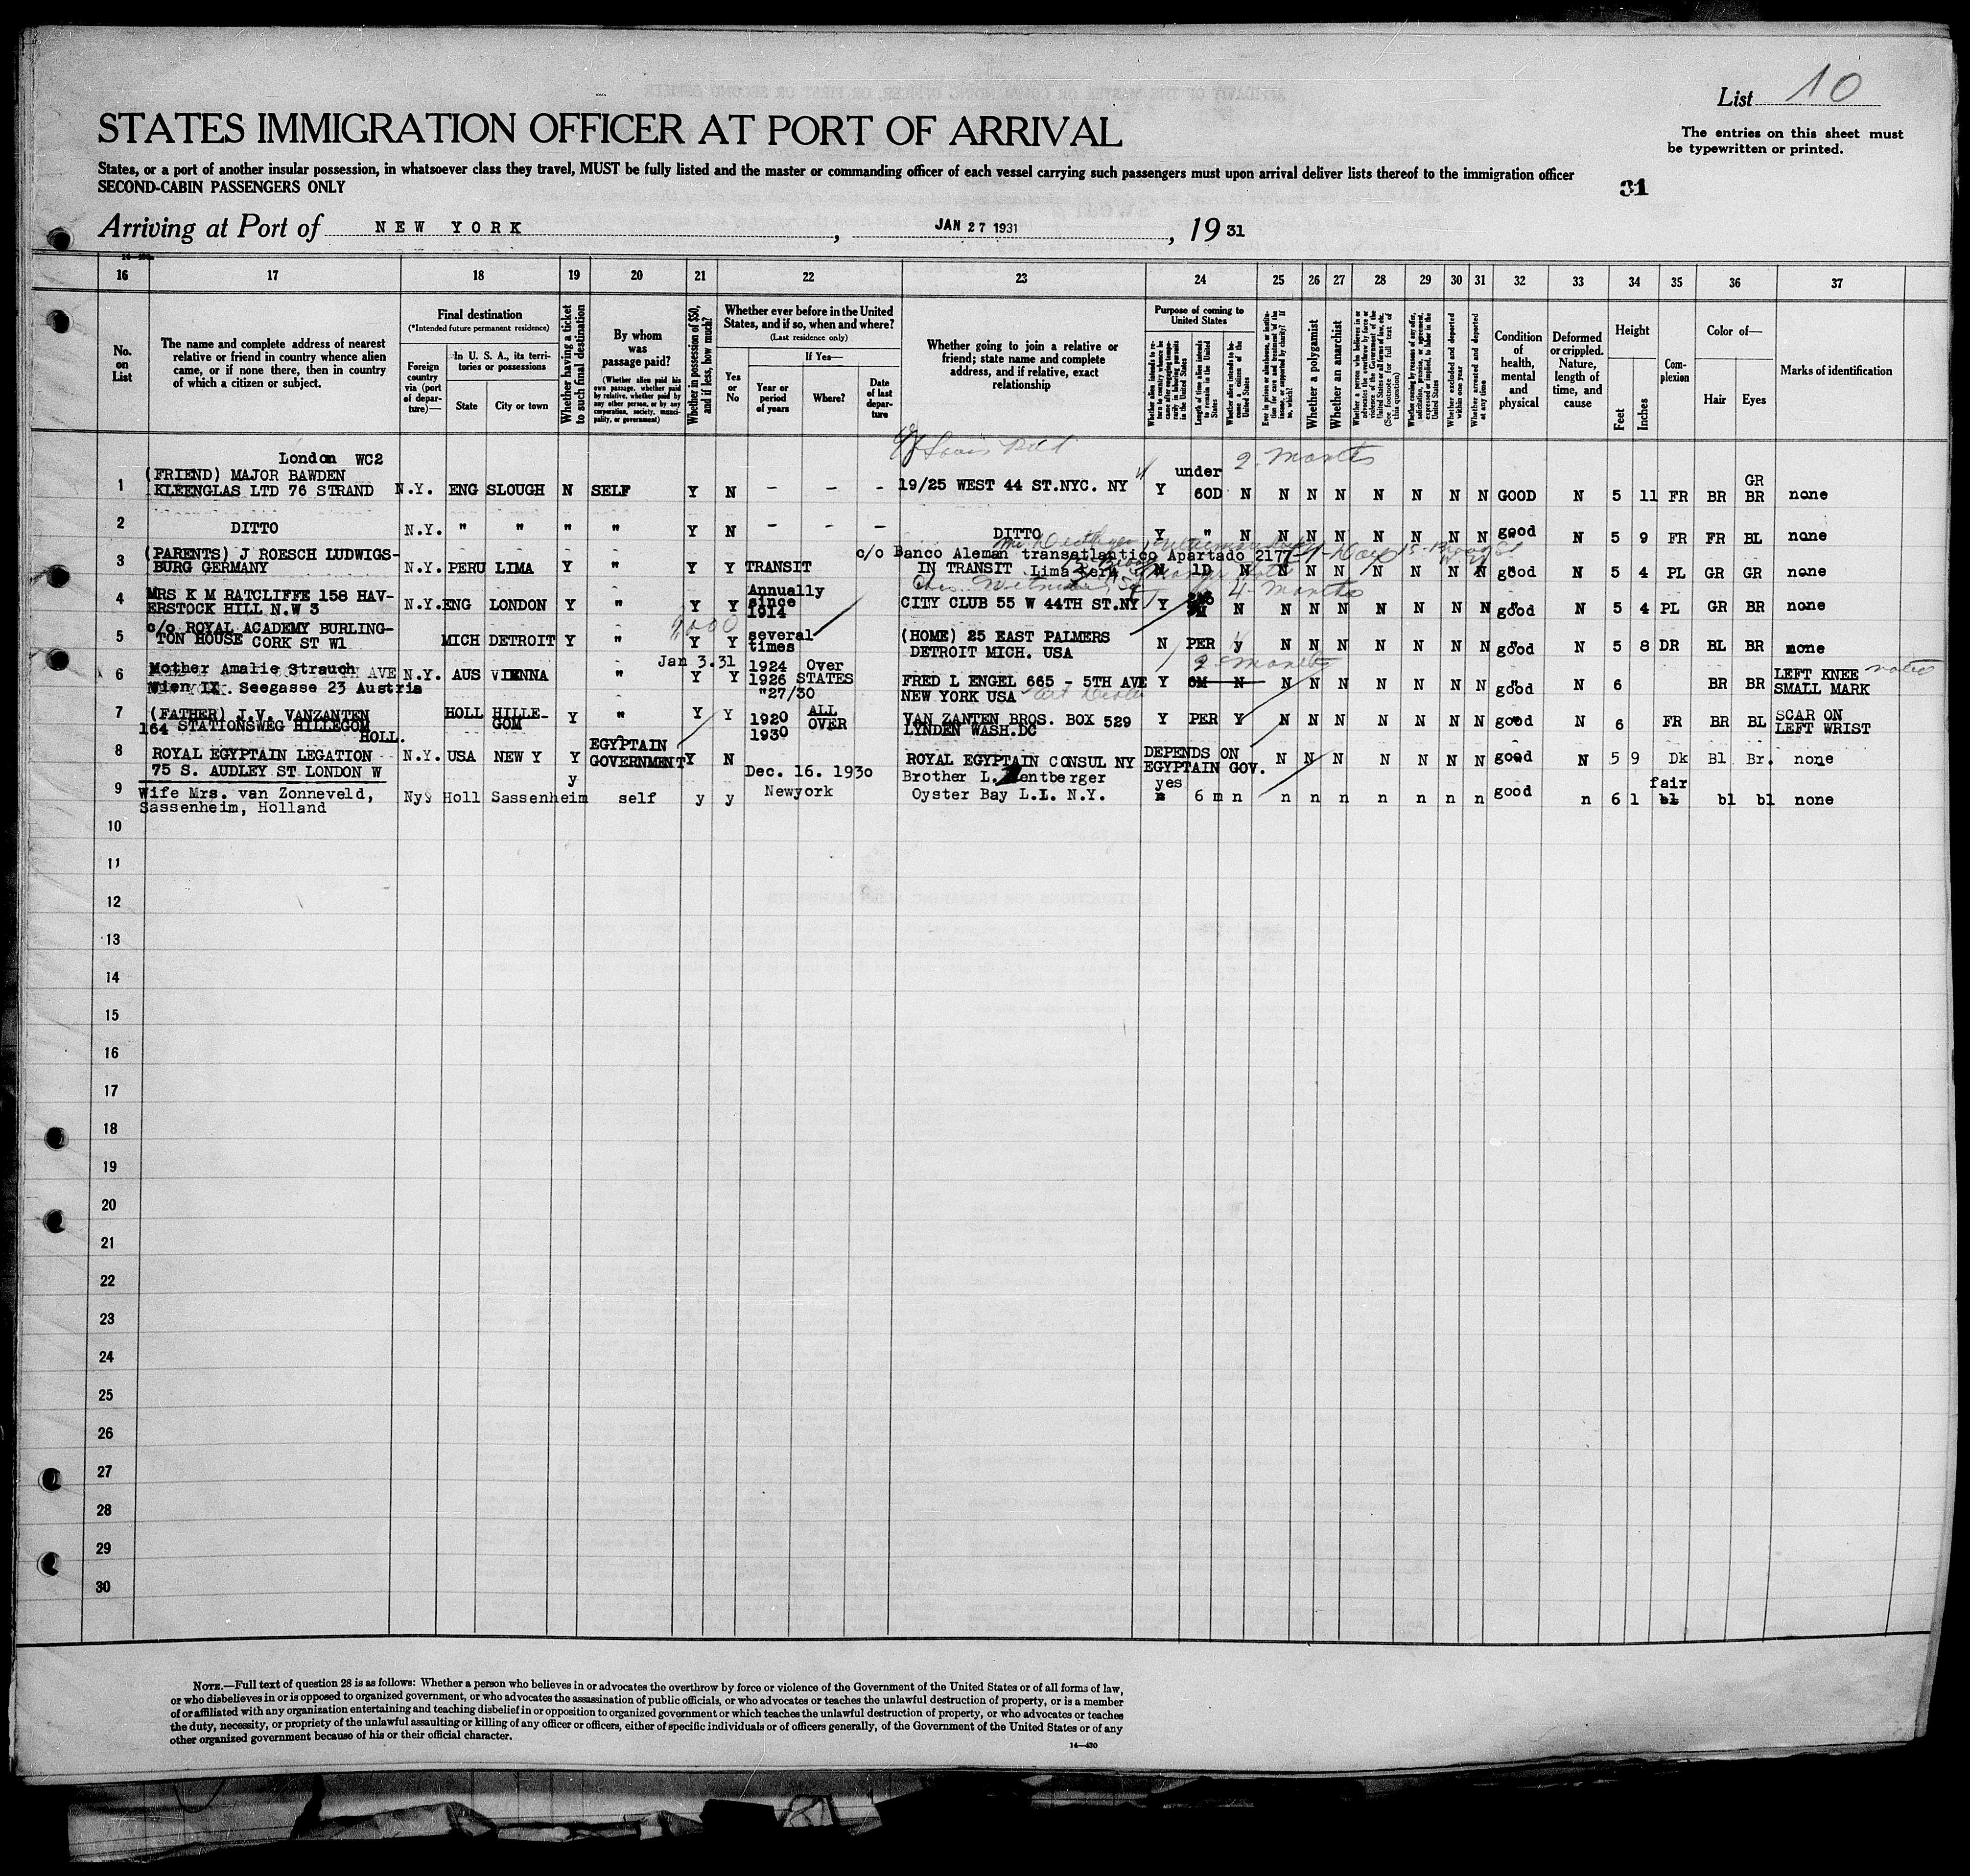 List 10
STATES IMMIGRATION OFFICER AT PORT OF ARRIVAL
The entries on this sheet must
be typewritten or printed.
States, or a port of another insular possession, in whatsoever class they travel, MUST be fully listed and the master or commanding officer of each vessel carrying such passengers must upon arrival deliver lists thereof to the immigration officer
SECOND-CABIN PASSENGERS ONLY
31
Arriving at Port of NEW YORK, JAN 27 1931, 19 31
16 17 18 19 20 21 22 23 24 25 26 27 28 29 30 31 32 33 34 35 36 37
No.
on
List
The name and complete address of nearest
relative or friend in country whence alien
came, or if none there, then in country
of which a citizen or subject.
Final destination
(*Intended future permanent residence)
Foreign
country
via (port
of depar-
ture)—
In U. S. A., its terri-
tories or possessions
State
City or town
Whether having a ticket
to such final destination
By whom
was
passage paid?
(Whether alien paid his
own passage, whether paid
by relative, whether paid by
any other person, or by any
corporation, society, munici-
pality, or government)
Whether in possession of $50,
and if less, how much?
Whether ever before in the United
States, and if so, when and where?
(Last residence only)
Yes
or
No
If Yes—
Year or
period
of years
Where?
Date
of last
depar-
ture
Whether going to join a relative or
friend; state name and complete
address, and if relative, exact
relationship
Purpose of coming to
United States
Length of time alien intends
to remain in the United
States
Whether alien intends to be-
come a citizen of the
United States
Whether a polygamist
Whether an anarchist
Whether excluded and deported
within one year
Whether arrested and deported
at any time
Condition
of
health,
mental
and
physical
Deformed
or crippled.
Nature,
length of
time, and
cause
Height
Feet
Inches
Com-
plexion
Color of—
Hair
Eyes
Marks of identification
2 months
London WC2
1 (FRIEND) MAJOR BAWDEN
KLEENGLAS LTD 76 STRAND N.Y. ENG SLOUGH N SELF Y N - - - 19/25 WEST 44 ST.NYC. NY Y under 60D N N N N N N N N GOOD N 5 11 FR BR GR BR none
2 DITTO N.Y. " " " " Y N - - - DITTO Y " N N N N N N N N good N 5 9 FR FR BL none
3 (PARENTS) J ROESCH LUDWIGS-
BURG GERMANY N.Y. PERU LIMA Y " Y Y TRANSIT c/o Banco Aleman transatlantico Apartado 2177
IN TRANSIT Lima N 1D N N N N N N N N good N 5 4 PL GR GR none
4 MRS K M RATCLIFFE 158 HAV-
ERSTOCK HILL N.W 3 N.Y. ENG LONDON Y " Y Y Annually
since
1914 CITY CLUB 55 W 44TH ST.NY Y 4 months N N N N N N N N good N 5 4 PL GR BR none
5 c/o ROYAL ACADEMY BURLING-
TON HOUSE CORK ST W1 MICH DETROIT Y " Y Y several
times (HOME) 25 EAST PALMERS
DETROIT MICH. USA N PER y N N N N N N N good N 5 8 DR BL BR none
6 Mother Amalie Strauch AVE
Wien IX. Seegasse 23 Austria N.Y. AUS VIENNA " Jan 3.31 Y Y 1924 Over
1926 STATES
"27/30 FRED L ENGEL 665 - 5TH AVE
NEW YORK USA Y 6M N 2 months N N N N N N N good N 6 BR BR LEFT KNEE
SMALL MARK
7 (FATHER) J.V. VANZANTEN
164 STATIONSWEG HILLEGOM
HOLL. HOLL HILLE-
GOM Y " Y Y 1920
1930 ALL
OVER VAN ZANTEN BROS. BOX 529
LYNDEN WASH.DC Y PER Y N N N N N N N good N 6 FR BR BL SCAR ON
LEFT WRIST
8 ROYAL EGYPTAIN LEGATION
75 S. AUDLEY ST LONDON W N.Y. USA NEW Y Y EGYPTAIN
GOVERNMENT Y N ROYAL EGYPTAIN CONSUL NY DEPENDS ON
EGYPTAIN GOV. N N N N N N N good N 5 9 Dk Bl Br. none
9 Wife Mrs. van Zonneveld,
Sassenheim, Holland Ny Holl Sassenheim y self y y Dec. 16. 1930
Newyork Brother L. entberger
Oyster Bay L.I. N.Y. yes 6 m n n n n n n n n good n 6 1 fair bl bl none
10
11
12
13
14
15
16
17
18
19
20
21
22
23
24
25
26
27
28
29
30
NOTE.—Full text of question 28 is as follows: Whether a person who believes in or advocates the overthrow by force or violence of the Government of the United States or of all forms of law,
or who disbelieves in or is opposed to organized government, or who advocates the assassination of public officials, or who advocates or teaches the unlawful destruction of property, or is a member
of or affiliated with any organization entertaining and teaching disbelief in or opposition to organized government or which teaches the unlawful destruction of property, or who advocates or teaches
the duty, necessity, or propriety of the unlawful assaulting or killing of any officer or officers, either of specific individuals or of officers generally, of the Government of the United States or of any
other organized government because of his or their official character.
14—430